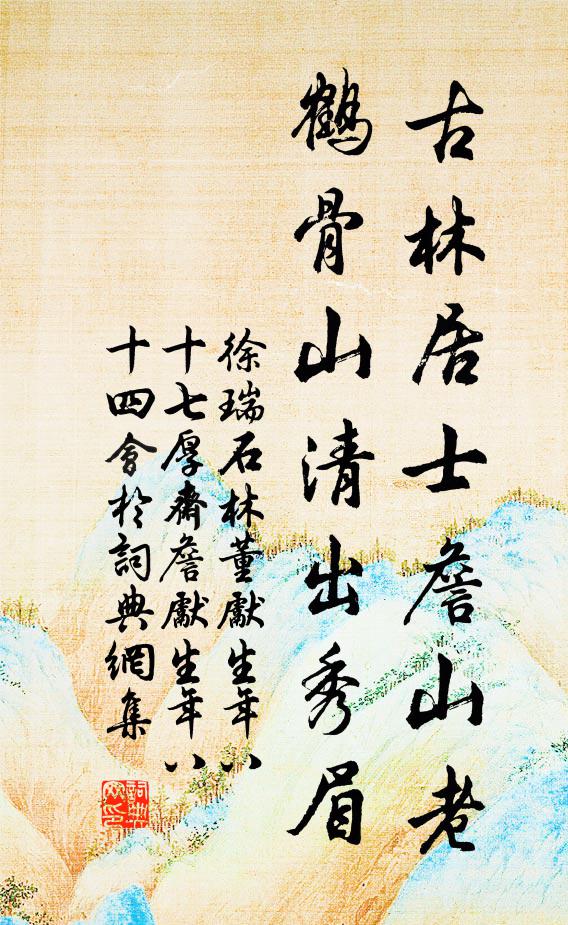 古林居士詹山老
鶴骨山清出秀眉
徐瑞石林董獻生年八
十七厚齋詹獻生年八
十四會於詞典網集
詞典網印